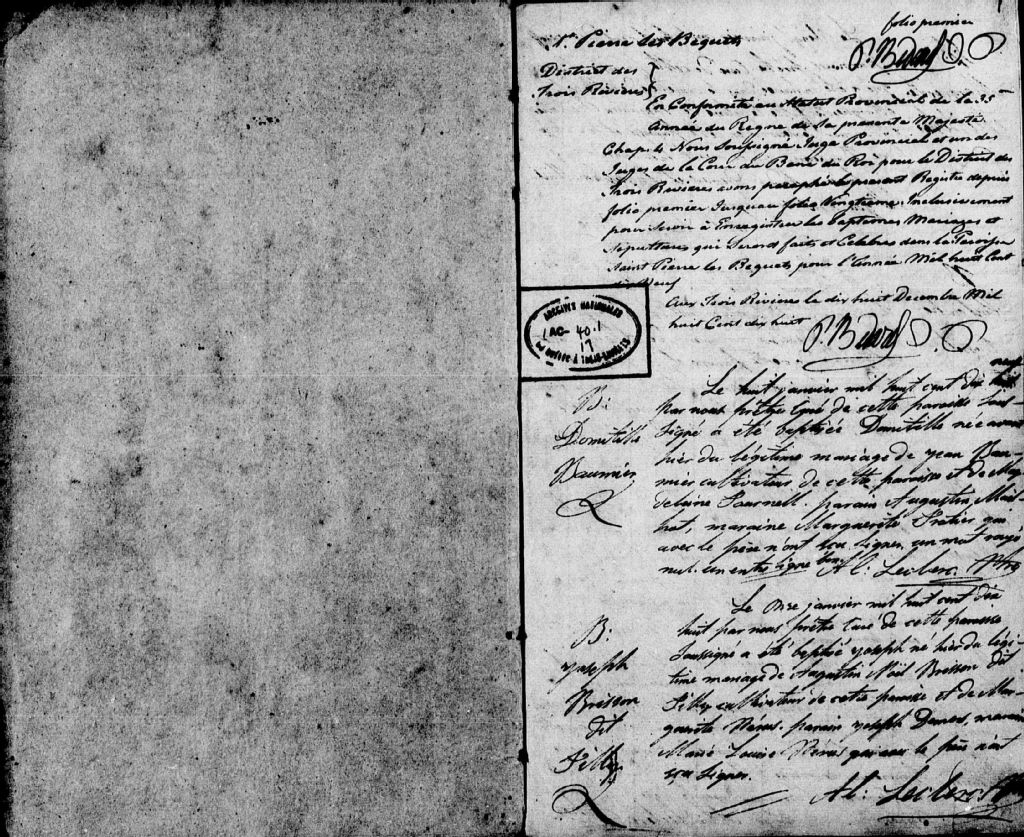 folio premier
St Pierre les Bequets
P. Bedard
District des
Trois Rivieres
En Conformité au Statut Provincial de la 35
Année du Regne de Sa presente Majesté
Chap. 4 Nous Soussigné Juge Provincial et un des
Juges de la Cour du Banc du Roi pour le District des
Trois Rivieres avons paraphé le present Registre depuis
folio premier Jusquau folio Vingtieme Inclusivement
pour Servir à Enregistrer les Baptemes Mariages et
Sepultures qui Seront faits et Celebrés dans la Paroisse
Saint Pierre les Bequets pour l'Année Mil huit Cent
dix Neuf
Aux Trois Rivieres le dix huit Decembre Mil
huit Cent dix huit
P. Bedard
ARCHIVES NATIONALES
AC- 40.1
17
DU QUÉBEC À TROIS-RIVIÈRES
neuf
B:
Domitille
Baumier
Le huit janvier mil huit cent dix huit
par nous prêtre Curé de cette paroisse sous-
signé a été baptisée Domitille née avant
hier du légitime mariage de jean Bau-
mier cultivateur de cette paroisse et de Mag
delaine parain Augustin Mail
hot, maraine Marguerite qui
avec le père n'ont sçu signer, un mot rayé
nul. un entre ligne bon Al: Leclerc Ptre
B:
yoseph
Brisson
dit
Tilly
Le onze janvier mil huit cent dix
huit par nous prêtre curé de cette paroisse
soussigné a été baptisé yoseph né hier du légi-
time mariage de Augustin Noël Brisson dit
Tilly cultivateur de cette paroisse et de Mar-
guerite parain yoseph maraine
Marie Louise qui avec le père n'ont
sçu signer.
Al: Leclerc Ptre